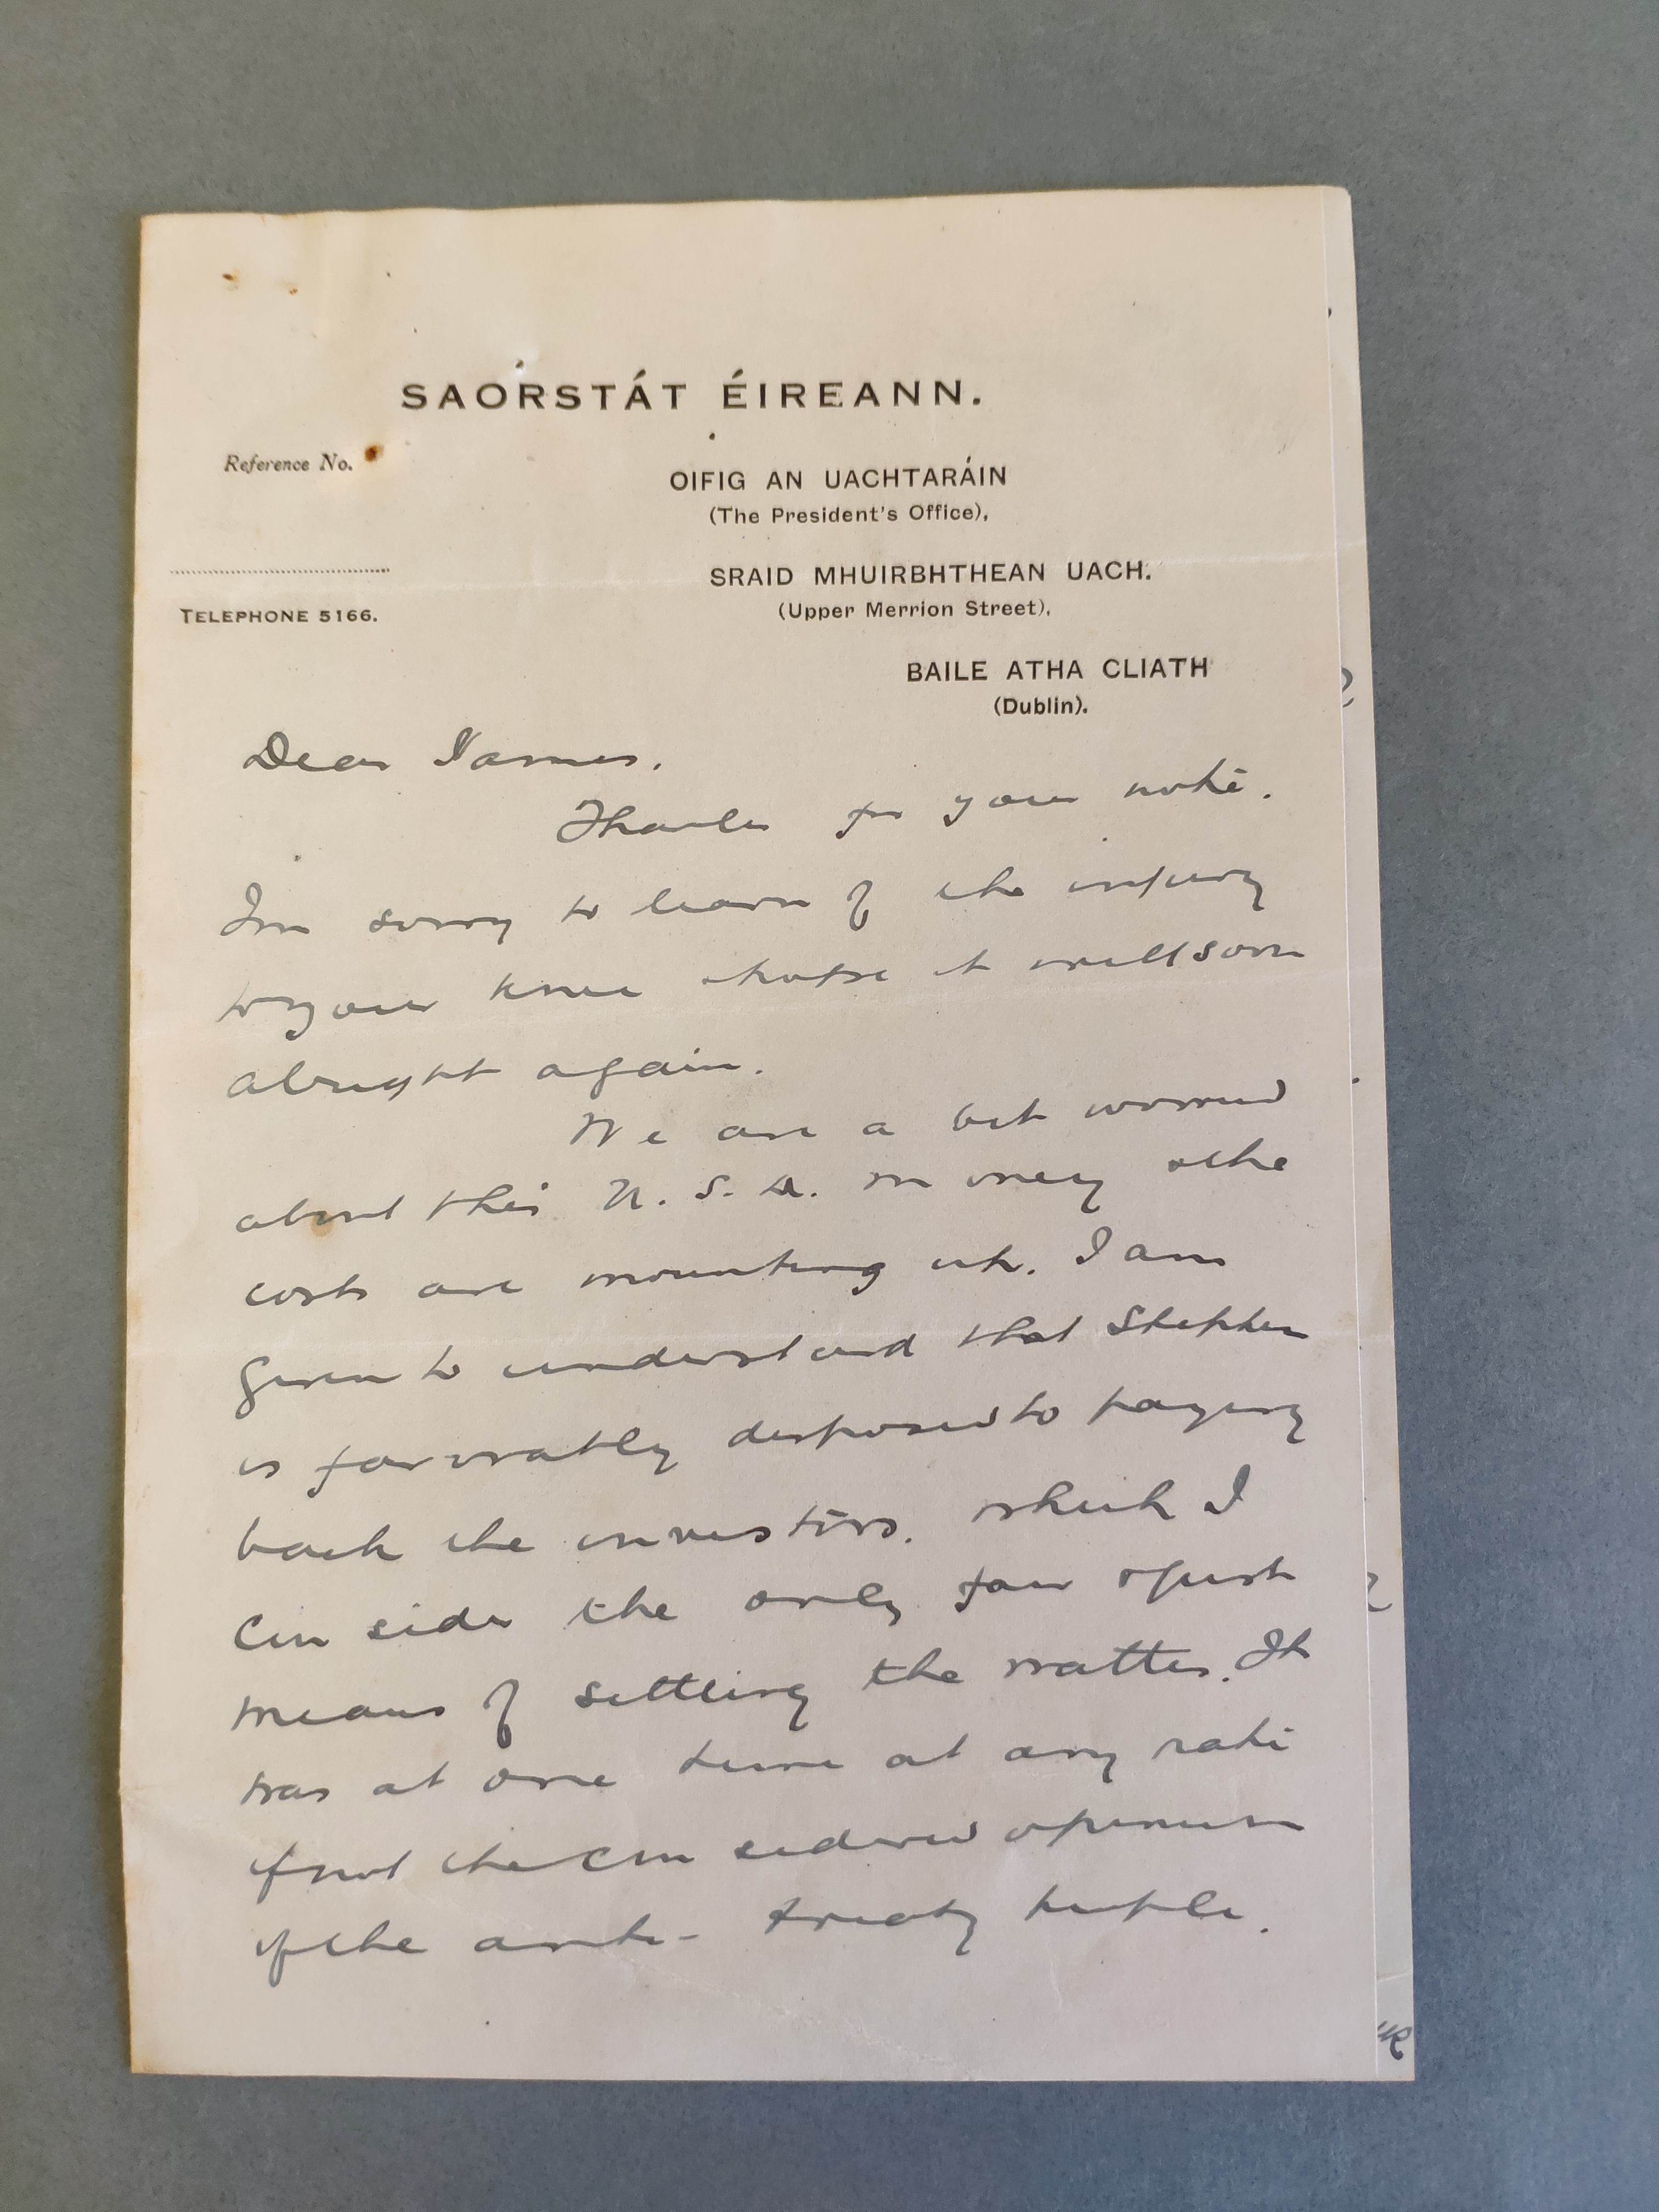 SAORSTÁT ÉIREANN.
Reference No.
OIFIG AN UACHTARÁIN
(The President's Office),
SRAID MHUIRBHTHEAN UACH.
(Upper Merrion Street),
TELEPHONE 5166.
BAILE ATHA CLIATH
(Dublin).
Dear James.
Thanks for your note.
Im sorry to learn of the injury
to your knee & hope it will soon
alright again.
We are a bit worried
about this U.S.A. money & the
costs are mounting up. I am
given to understand that Stephen
is favorably disposed to paying
back the investors. which I
consider the only fair & just
means of settling the matter. It
was at one time at any rate
if not the considered opinion
of the anti-treaty people.